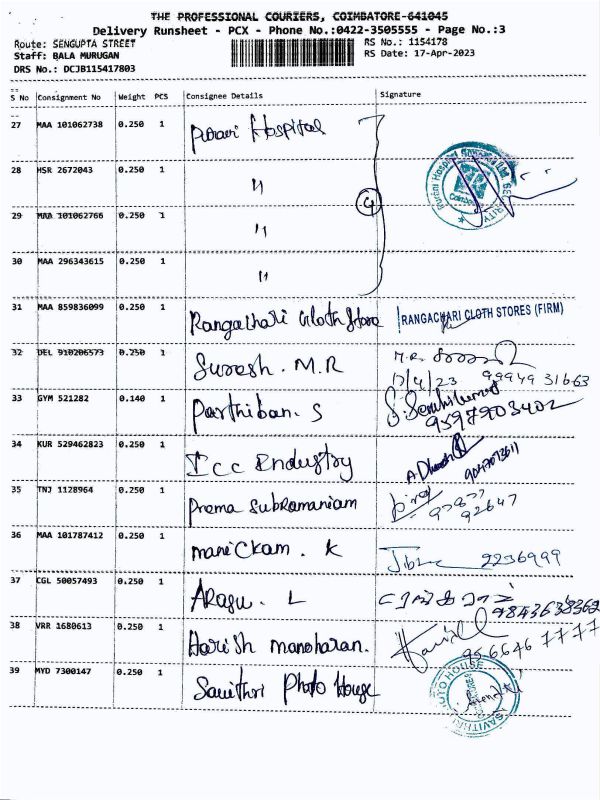 THE PROFESSIONAL COURIERS, COIMBATORE-641045
Delivery Runsheet - PCX - Phone No.:0422-3505555 - Page No.:3
Route: SENGUPTA STREET
Staff: BALA MURUGAN
DRS No.: DCJB115417803
RS No.: 1154178
RS Date: 17-Apr-2023
S No Consignment No Weight PCS Consignee Details Signature
27 MAA 101062738 0.250 1 Hospital
28 HSR 2672043 0.250 1 "
29 MAA 101062766 0.250 1 "
30 MAA 296343615 0.250 1 "
4
31 MAA 859836099 0.250 1 Rangachari Cloth Store RANGACHARI CLOTH STORES (FIRM)
32 DEL 910206573 0.250 1 Suresh. M.R M.R.
17/4/23 99949 31663
33 GYM 521282 0.140 1 Parthiban. S
9597903402
34 KUR 529462823 0.250 1 Icc Endustry
35 TNJ 1128964 0.250 1 Prema Subramaniam
92647
36 MAA 101787412 0.250 1 Manickam. K 2236999
37 CGL 50057493 0.250 1 ARasu. L
38 VRR 1680613 0.250 1 Harish manoharan.
39 MYD 7300147 0.250 1 Savithri Photo House